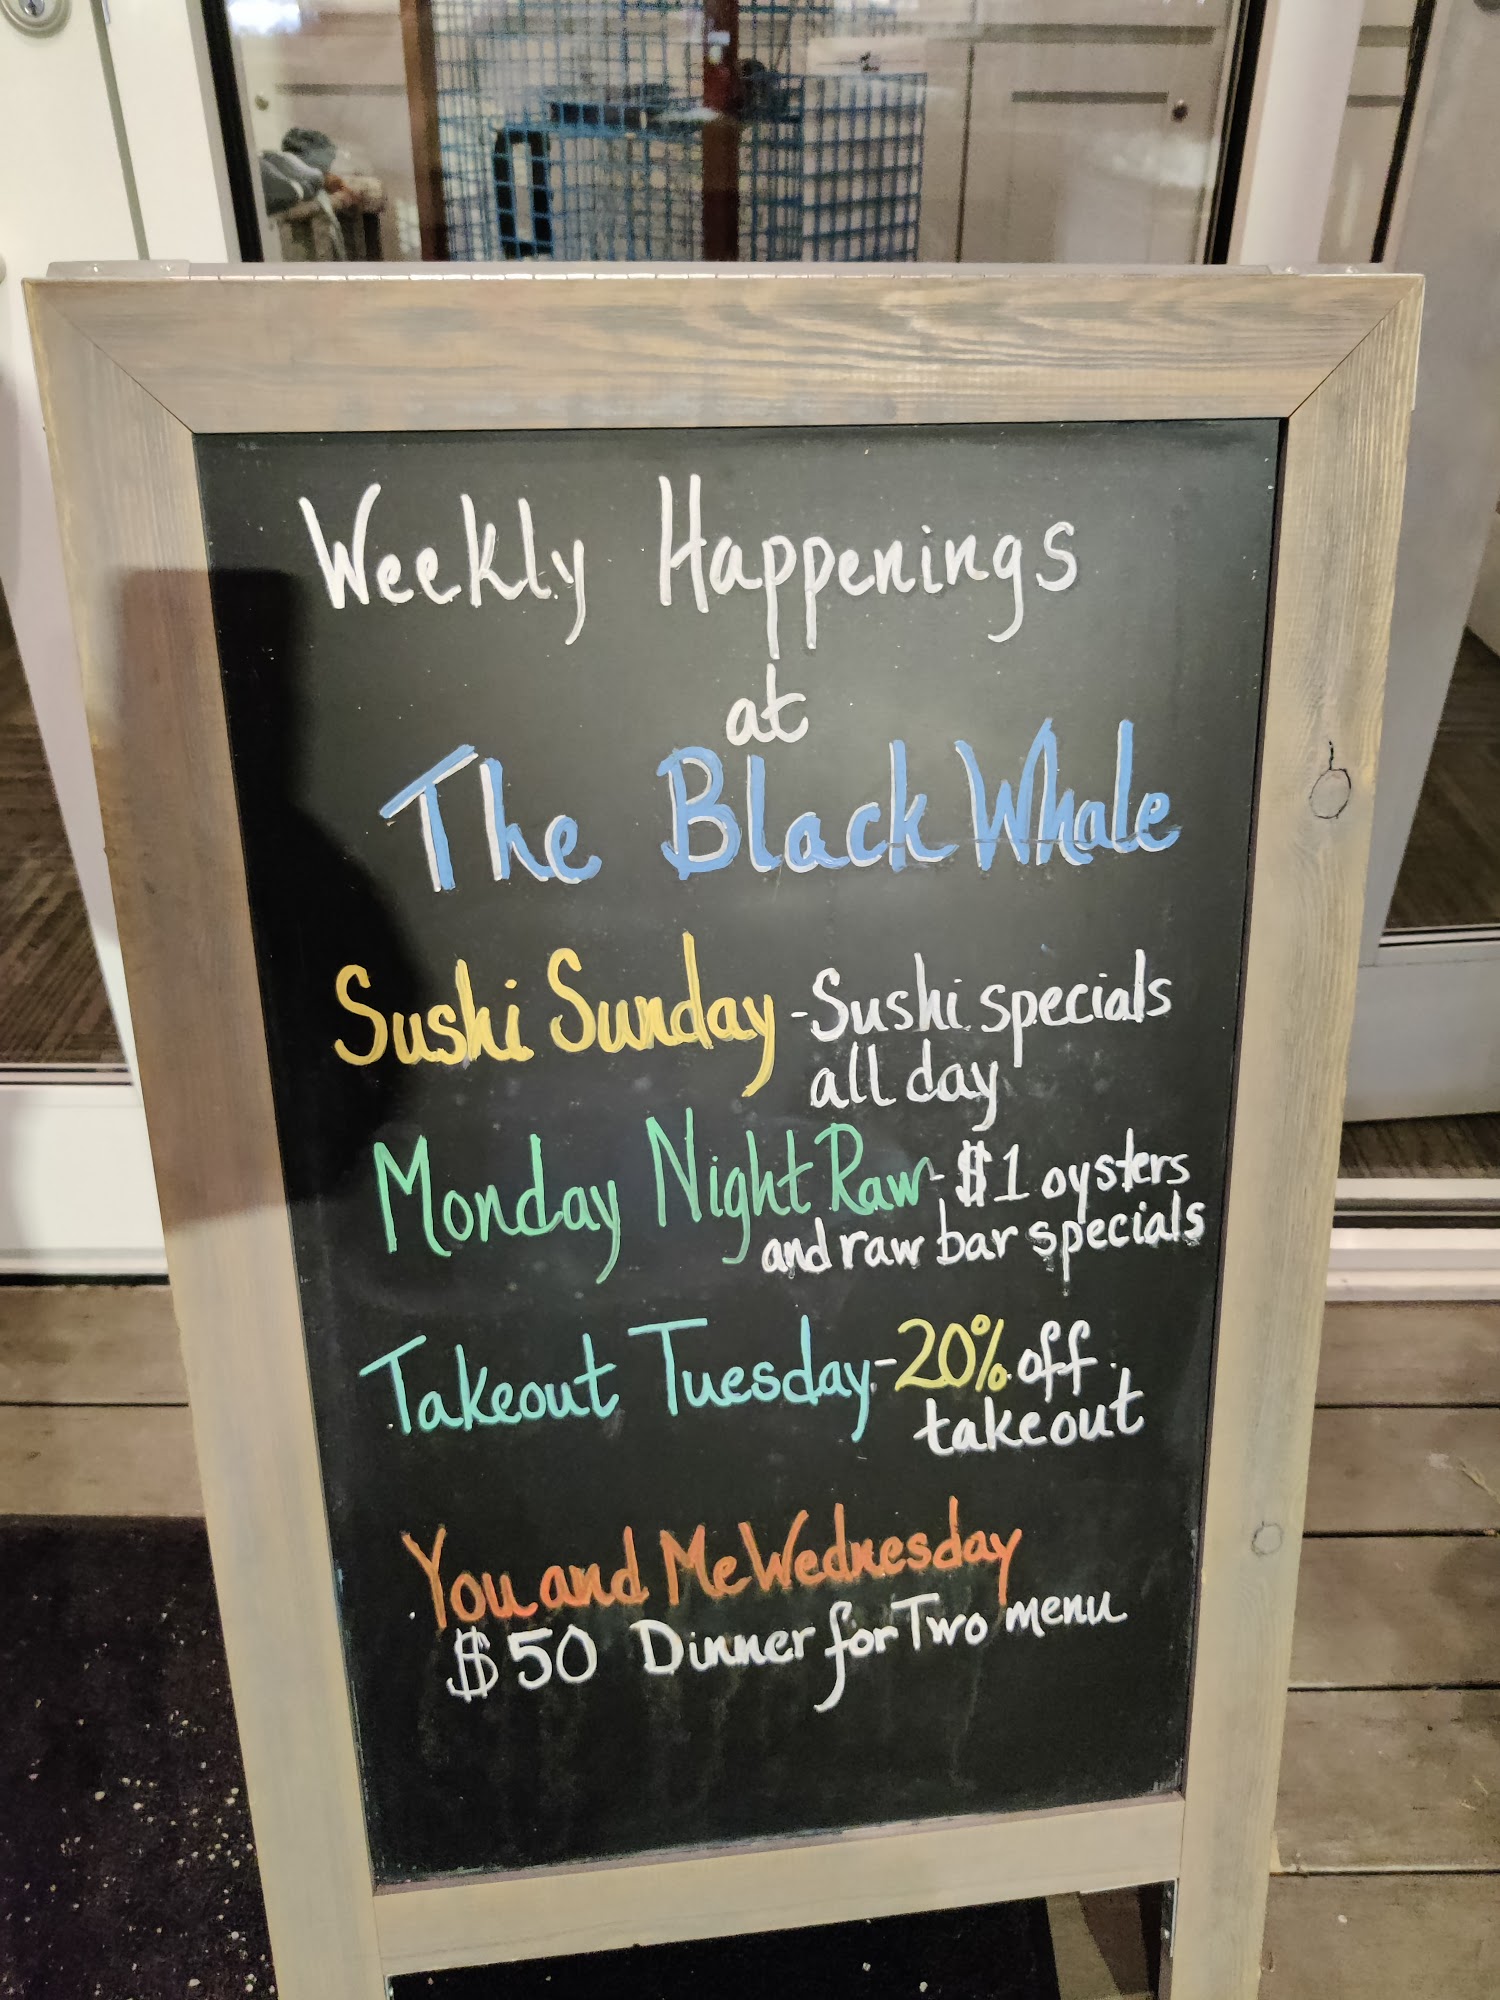 Weekly Happenings
at
The Black Whale
Sushi Sunday - Sushi specials
all day
Monday Night Raw - $1 oysters
and raw bar specials
Takeout Tuesday - 20% off
takeout
You and Me Wednesday
$50 Dinner for Two menu